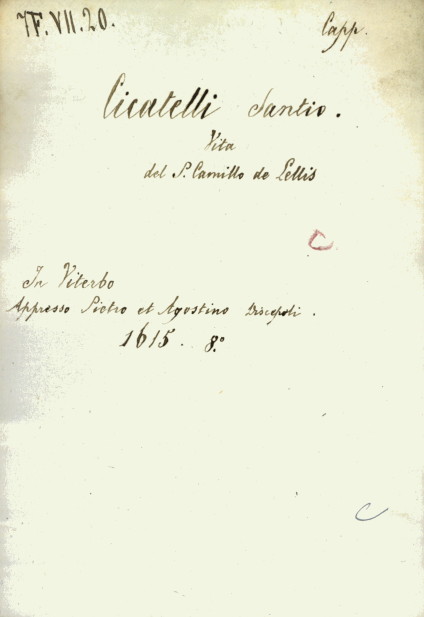 7F.VII.20.
Capp.
Cicatelli Santio.
Vita
del P. Camillo de Lellis
C
In Viterbo
Appresso Pietro et Agostino Discepoli.
1615. 8.º
C